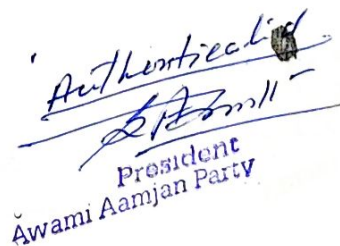 Authenticated
President
Awami Aamjan Party